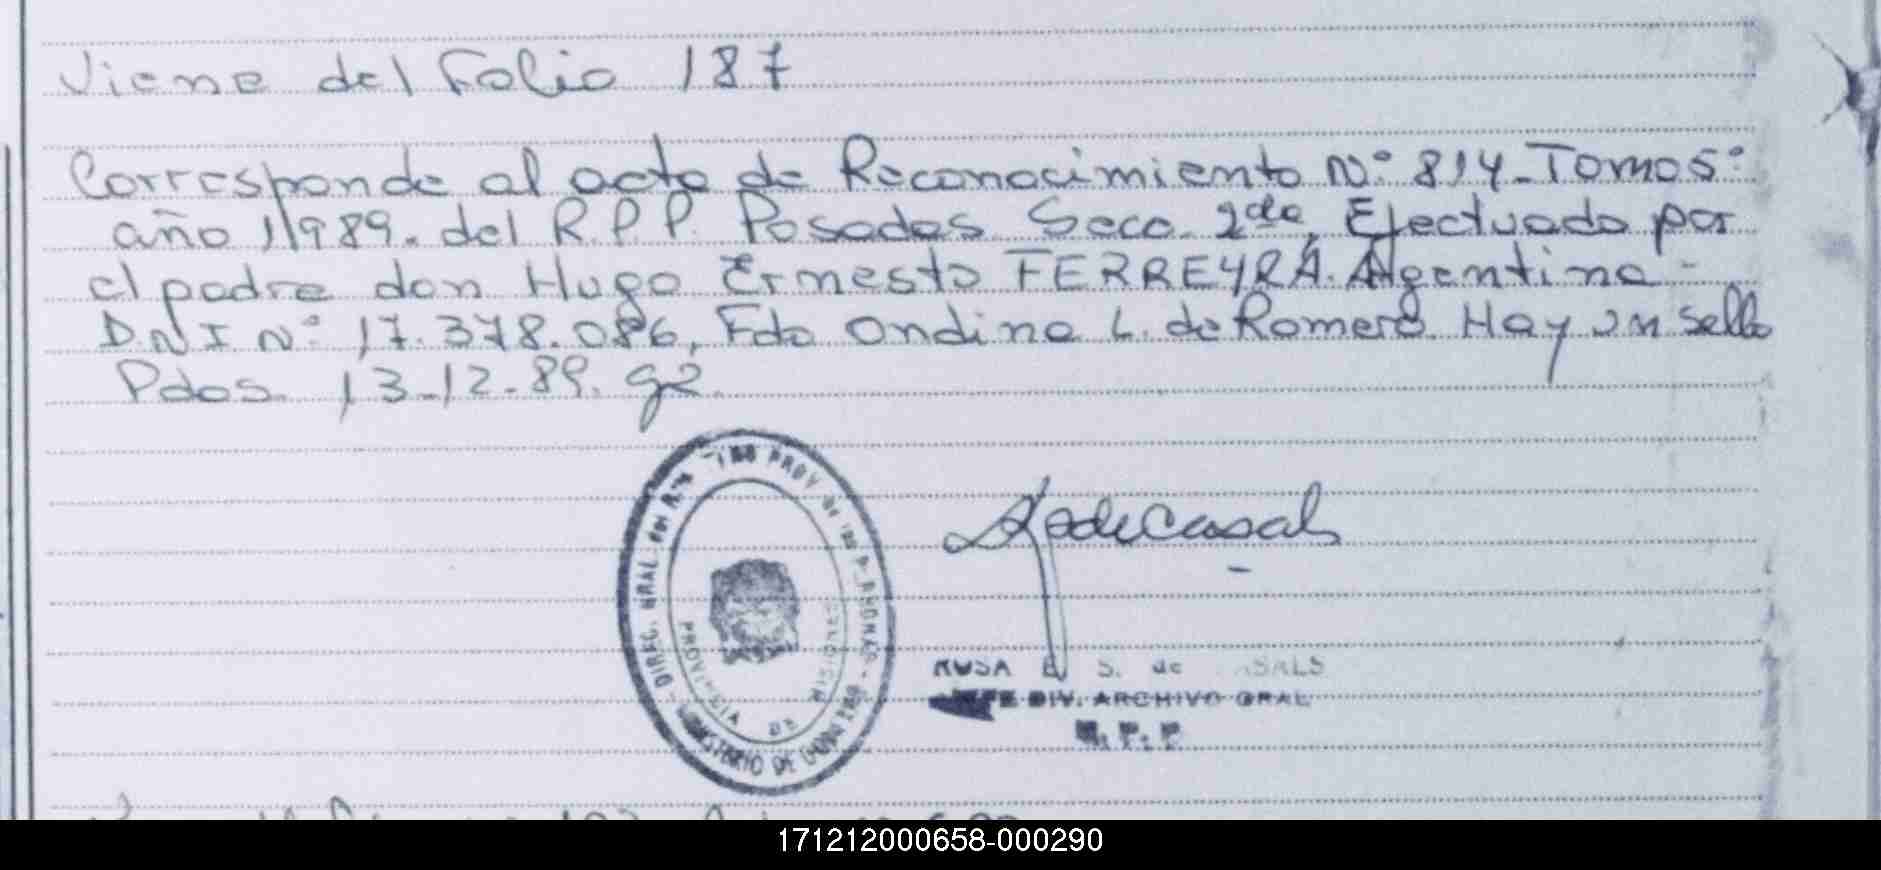 Viene del Folio 187
Corresponde al acta de Reconocimiento Nº 814-Tomo 5º
año 1989. del R.P.P. Posadas Secc. 2da, Efectuado por
el padre don Hugo Ernesto FERREYRA. Argentino-
DNI Nº 17.378.086, Fdo Ondina L. de Romero. Hay un sello
Pdas. 13-12-89. g2.
DIREC. GRAL. PROV. de las
PROVINCIA DE MISIONES
MINISTERIO DE
ROSA E S. de
JEFE DIV. ARCHIVO GRAL
R. P. P
171212000658-000290